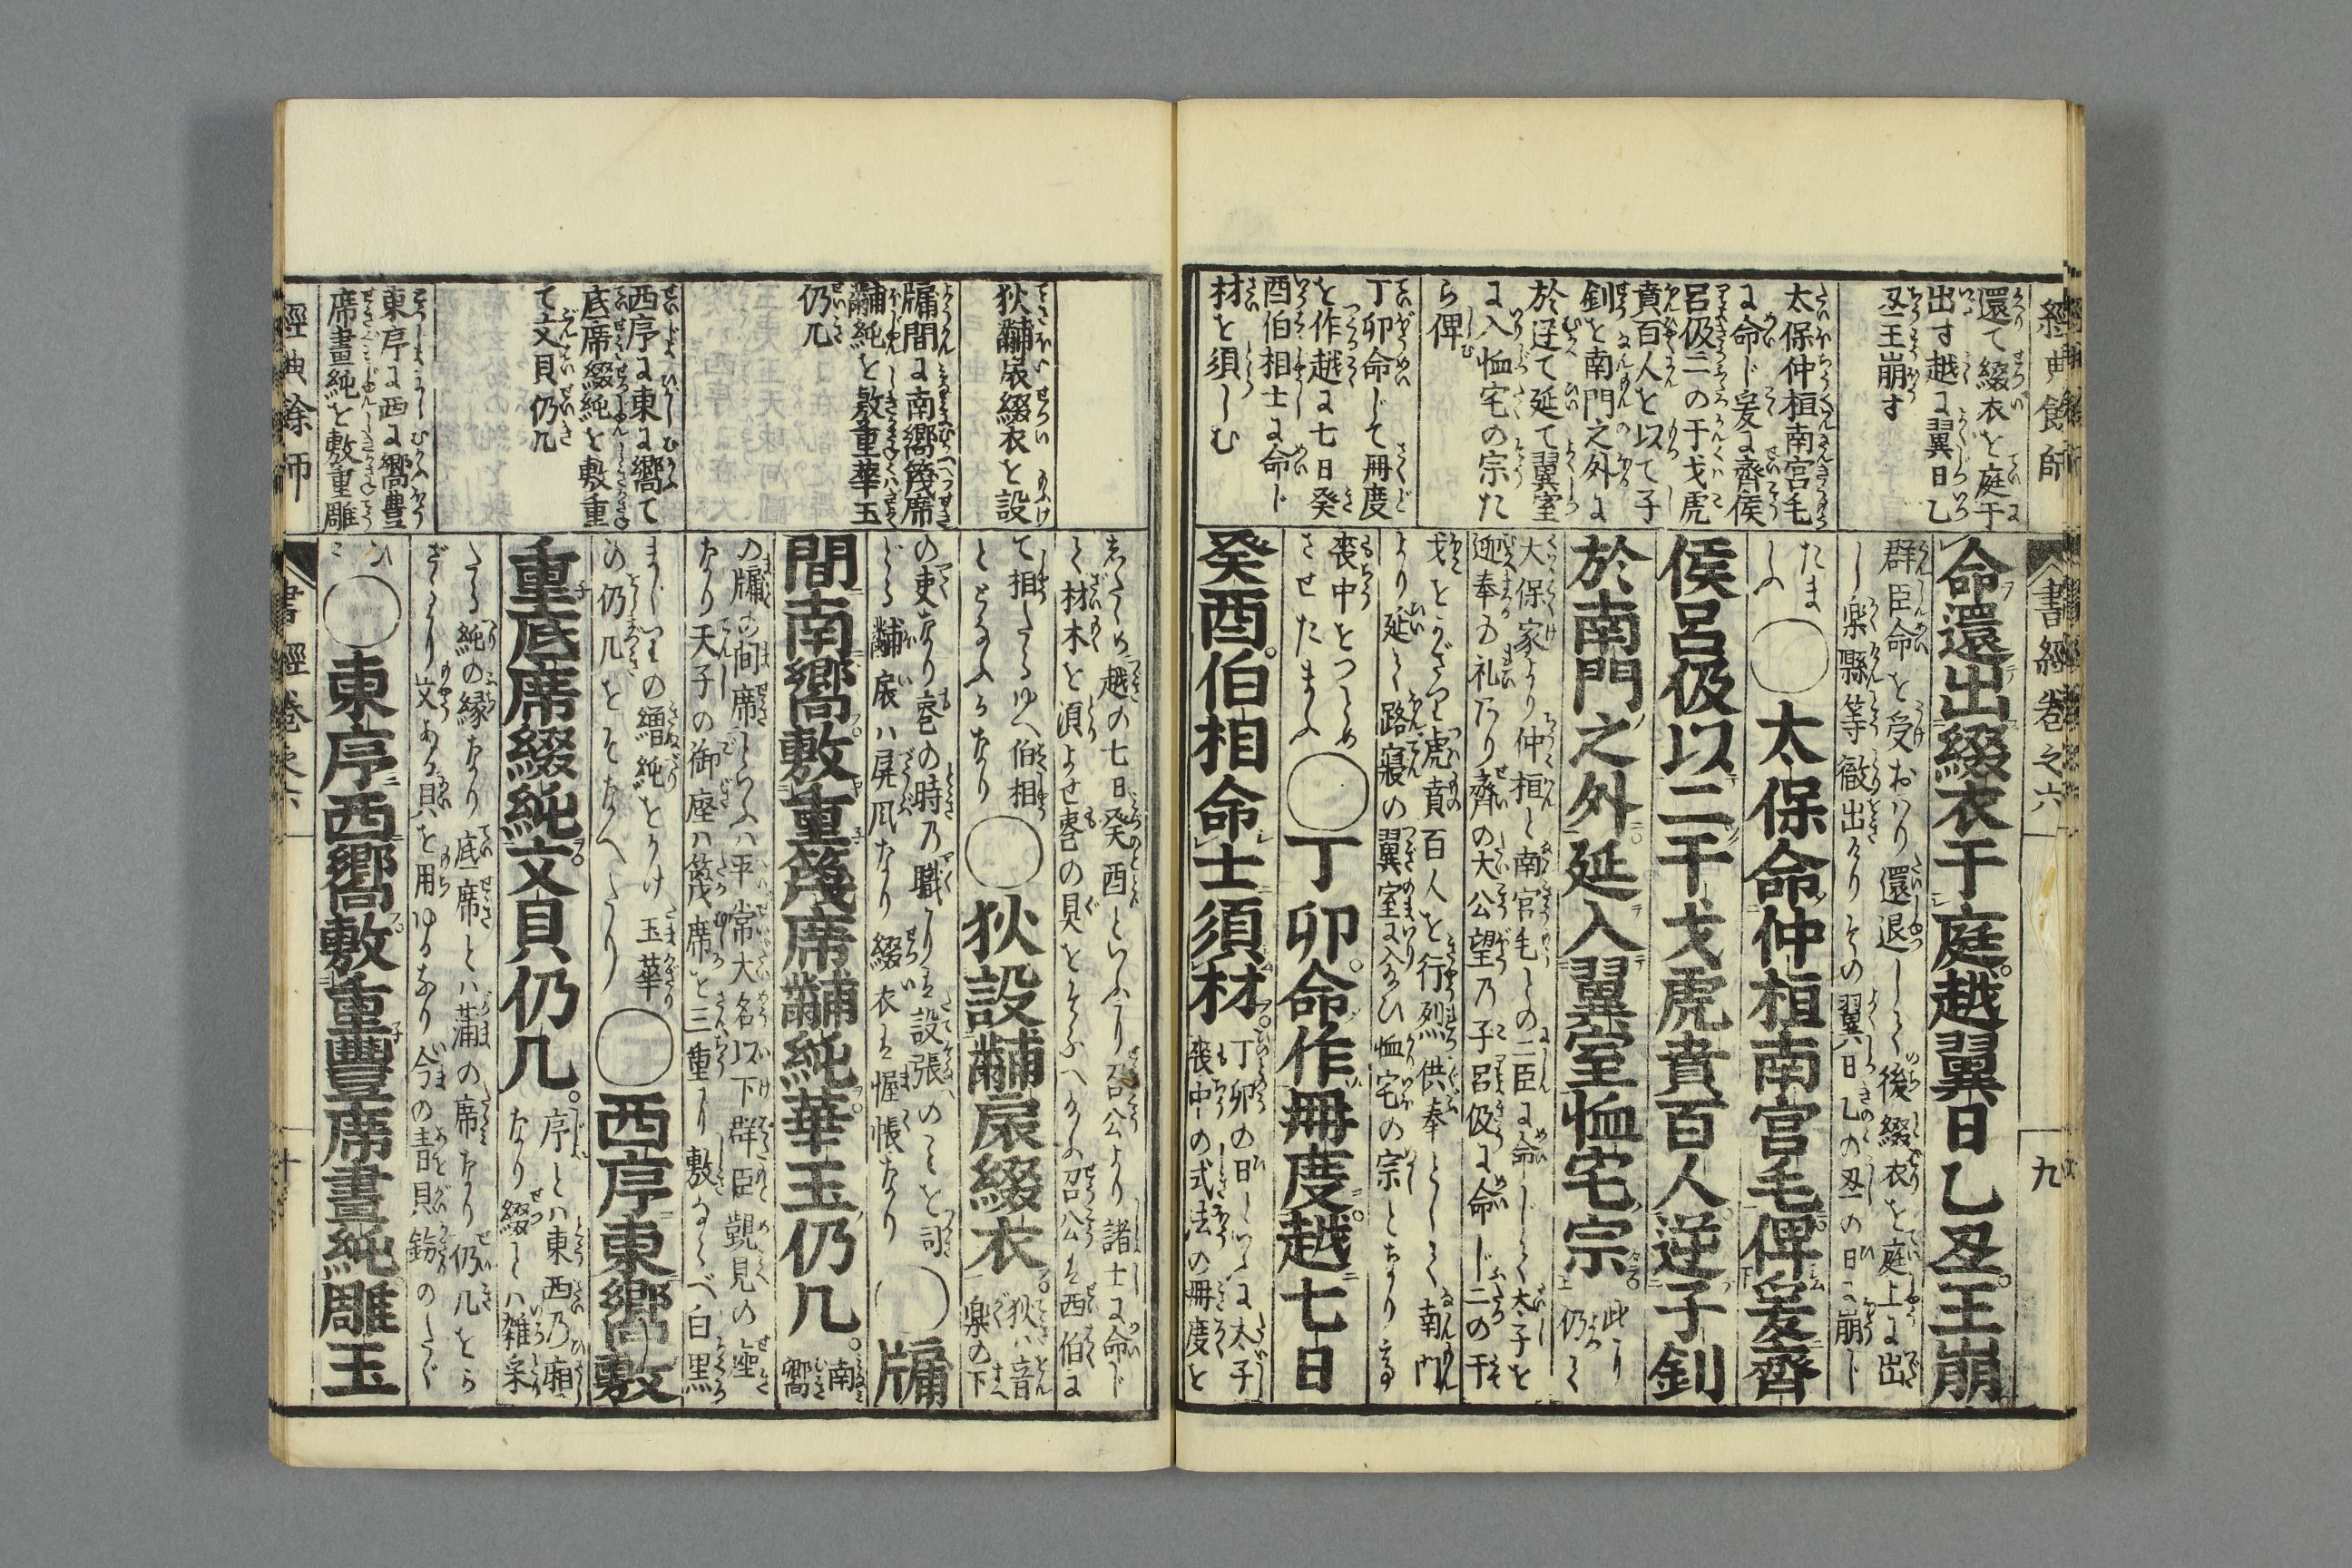 經典餘師
書經卷之六
九
還て綴衣を庭于
出す越に翼日乙
丑王崩す
太保仲桓南宮毛
に命じ爰に齊侯
呂伋二の干戈虎
賁百人を以て子
釗を南門之外に
於逆て延て翼室
に入恤宅の宗た
ら俾
丁卯命じて冊度
を作越に七日癸
酉伯相士に命じ
材を須しむ
命還出綴衣于庭越翼日乙丑王崩
群臣命を受おハり還退しく後綴衣を庭上に出
し楽縣等徹出けりその翼日乙の丑の日に崩じ
たま
しふ
○太保命仲桓南宮毛俾爰齊
侯呂伋以二干戈虎賁百人逆子釗
於南門之外延入翼室恤宅宗
大保家より仲桓と南宮毛との二臣に命じく太子を
迎奉る礼乃り齊の大公望乃子呂伋に命じ二の干
戈をかざつ虎賁百人を行烈供奉としく南門
より延く路寢の翼室に入るひ恤宅の宗とちり
喪中をつとめ
させたまふ
○丁卯命作冊度越七日
癸酉伯相命士須材
丁卯の日に太子
喪中の式法の冊度を
狄黼扆綴衣を設
牖間に南嚮篾席
黼純を敷重華玉
仍几
西序に東に嚮て
底席綴純を敷重
て文貝仍几
東序に西に嚮豊
席畫純を敷重雕
越の七日癸酉といふより召公より諸士に命じ
く材木を須よせ喪の具をそふへ召公を西伯に
て相たるゆへ伯相
ととなふるなり
○狄設黼扆綴衣
狄ハ音
楽の下
の吏なり喪の時乃職より設張のことを司
どる黼扆ハ屏风なり綴衣を幄帳なり
○牖
間南嚮敷重篾席黼純華玉仍几
南
嚮
の牖の间席といふハ平常大名以下群臣覲見の座
なり天子の御座ハ篾席を三重に敷るべ白黒
まじりの繒純をかけ玉華
の仍几をそなへたり
○西序東嚮敷
重底席綴純文貝仍几
序とハ東西乃廂
なり綴とハ雑采
たる純の縁なり底席とハ蒲の席なり仍几をら
ざるより文ある貝を用ゆるなり今の青貝餝のたぐ
ひ
○東序西嚮敷重豐席畫純雕玉
經典餘師
書經卷之六
十